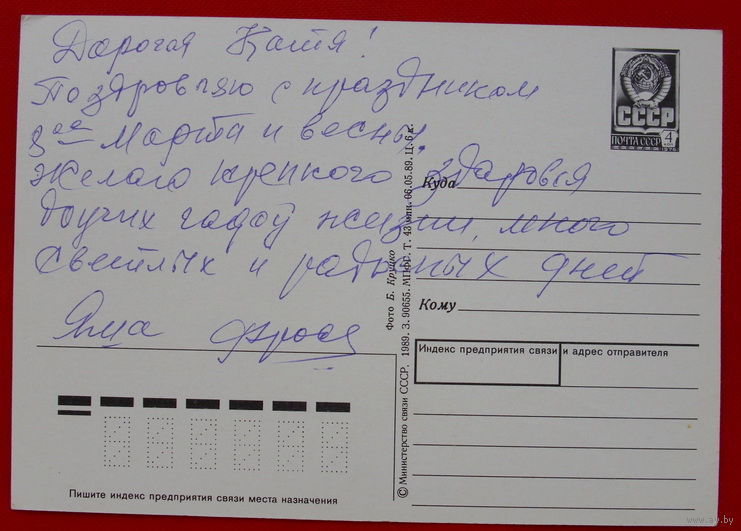 Дорогая Катя!
Поздровляю с праздником
8ое Марта и весны.
Желаю крепкого здоровья
долгих годов жизни, много
светлых и радосных дней
Фрося
СССР
ПОЧТА СССР
4
1976
Куда
Кому
Индекс предприятия связи и адрес отправителя
© Министерство связи СССР. 1989. З. 90655. МПФГ. Т. 43 млн. 06.05.89. Ц. 6 к.
Фото Б. Круцко
Пишите индекс предприятия связи места назначения
www.ay.by